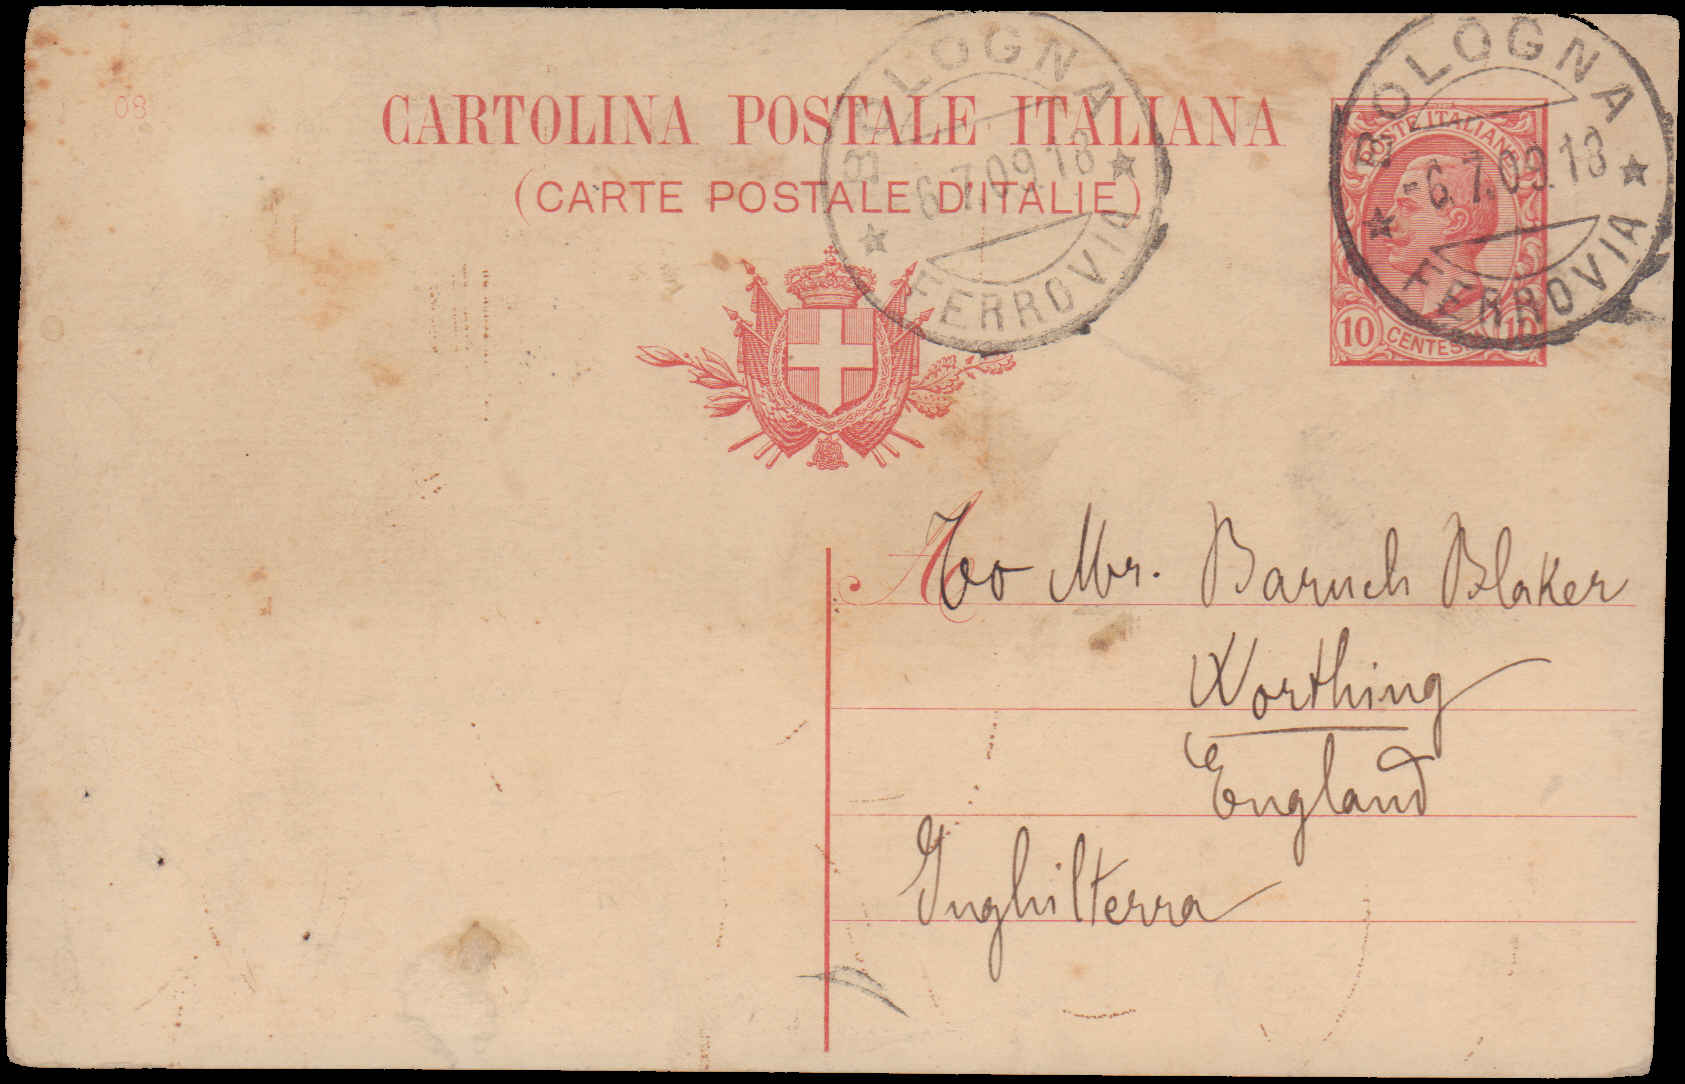 08
CARTOLINA POSTALE ITALIANA
(CARTE POSTALE D'ITALIE)
BOLOGNA
6.7.09.18
FERROVIA
POSTE ITALIANE
BOLOGNA
-6.7.09.18
FERROVIA
10 CENTES 10
A
Too Mr. Baruch Blaker
Worthing
England
Inghilterra